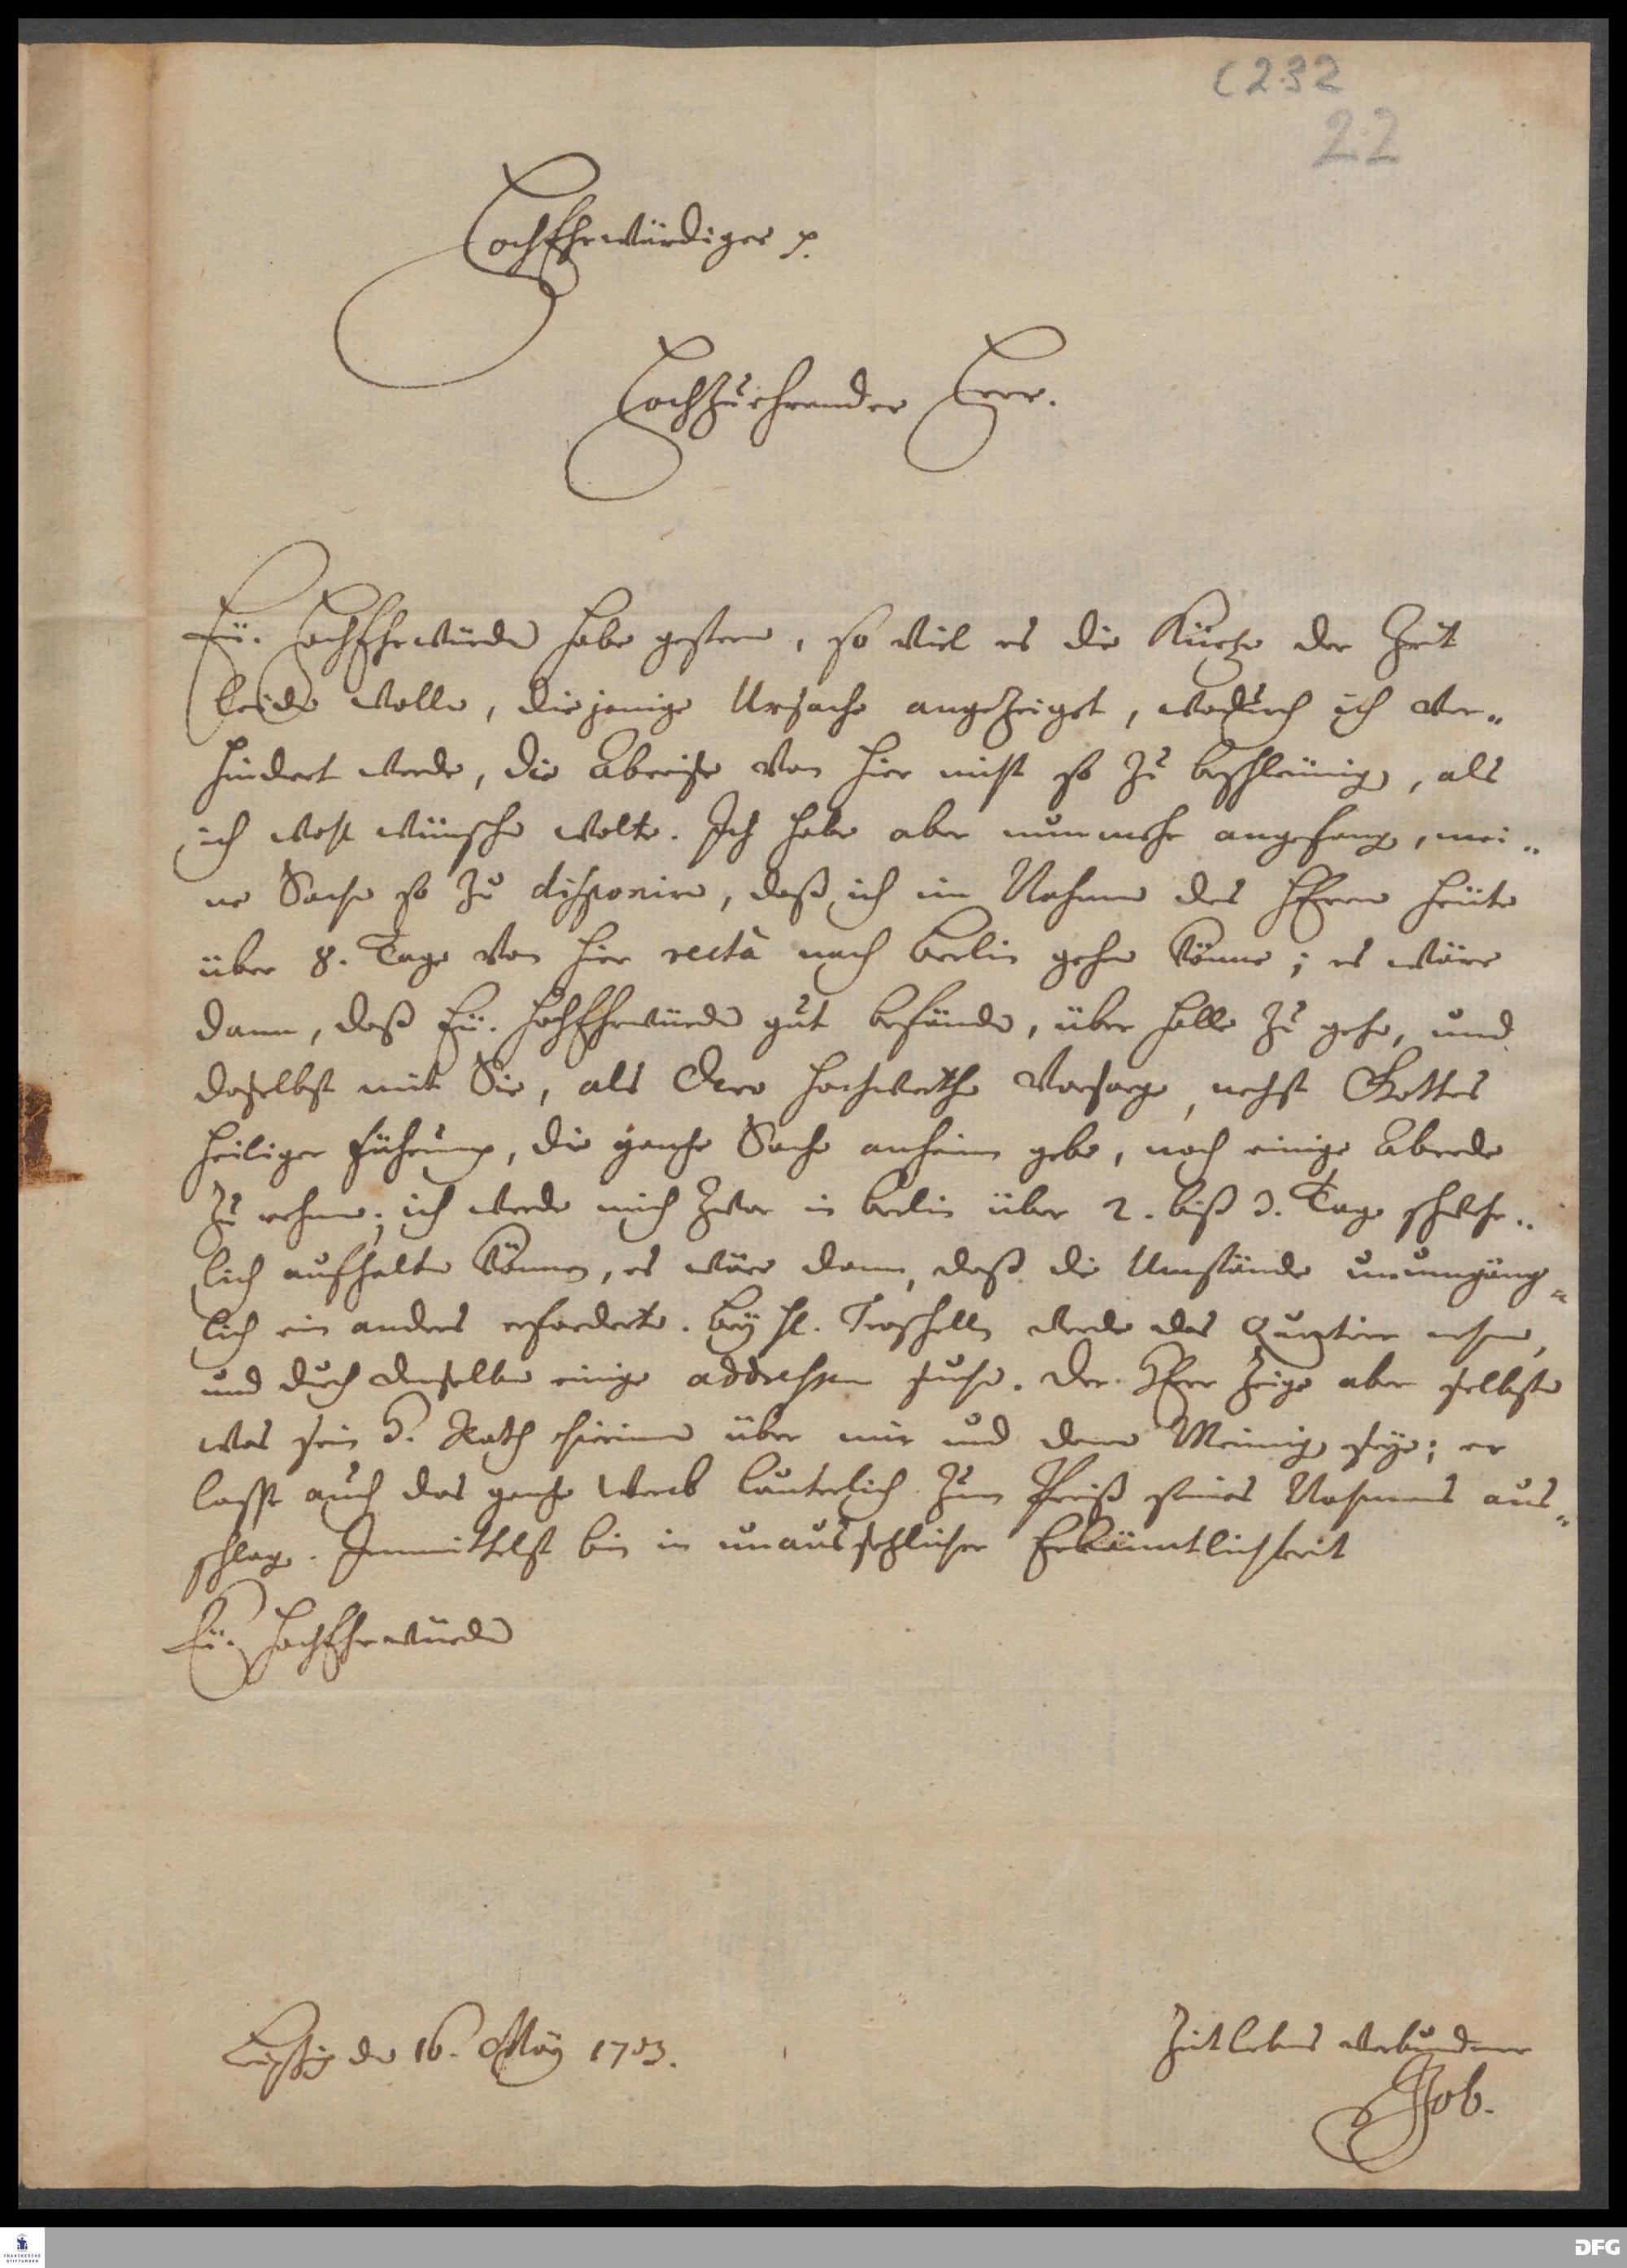 C 232
22
HochEhrwürdiger p.
Hochzuehrender Herr.
Eü. HochEhrwürden habe gestern, so viel es die Kürtze der Zeit
leiden wollen, diejenige Ursache angezeiget, wodurch ich ver-
hindert werde, die Abreise von hier nicht so zu beschleünigen, als
ich wohl wünschen wolte. Ich habe aber nunmehr angefangen, mei-
ne Sachen so zu disponiren, daß ich im Nahmen des HErrn heüte
über 8. Tage von hier rectà nach Berlin gehen könne; es wäre
dann, daß Eü. HochEhrwürden gut befänden, über Halle zu gehen, und
daselbst mit Sie, als Dero hochwerthen Vorsorge, nechst Gottes
heiliger Führung, die gantze Sache anheim gebe, noch einige Abrede
zu nehmen; ich werde mich zwar in Berlin über 2. biß 3. Tage schwehr-
lich aufhalten können, es wäre dann, daß die Umstände unumgäng-
lich ein anders erforderten. Bey H. Troschelln werde das Quartier nehmen,
und durch denselben einige addressen suchen. Der HErr zeige aber selbsten
was sein H. Rath hierinnen über mir und denen Meinigen seye; er
lasse auch das gantze Werck lauterlich zum Preiß seines Nahmens aus-
schlagen. Immittelst bin in unaussetzlicher Erkäntlichkeit
Eü. HochEhrwürden
Leipzig den 16. May 1703.
Zeitlebens verbundener
Job.
FRANCKESCHE
STIFTUNGEN
DFG